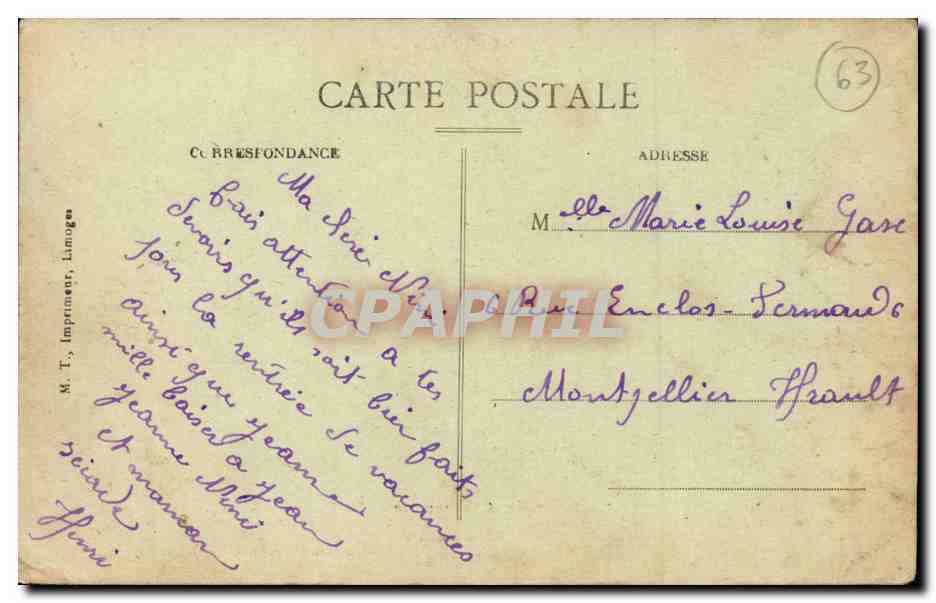 63
CARTE POSTALE
CORRESPONDANCE
ADRESSE
M. T., Imprimeur, Limoges
Ma
fais attention a tes
devoirs qu'ils soit bien faits
pour la rentrée de vacances
ainsi que Jeanne
mille baiser a Jean
Jeanne Mimi
et maman
Mimi
Melle Marie Louise Gasc
6 Rue Enclos-Fermaud 6
Montpellier Hrault
CPAPHIL